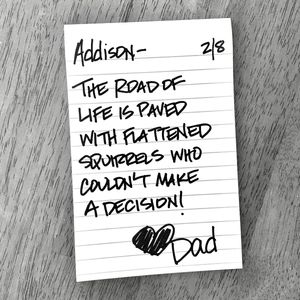 Addison- 2/8
THE ROAD OF
LIFE IS PAVED
WITH FLATTENED
SQUIRRELS WHO
COULDN'T MAKE
A DECISION!
Dad